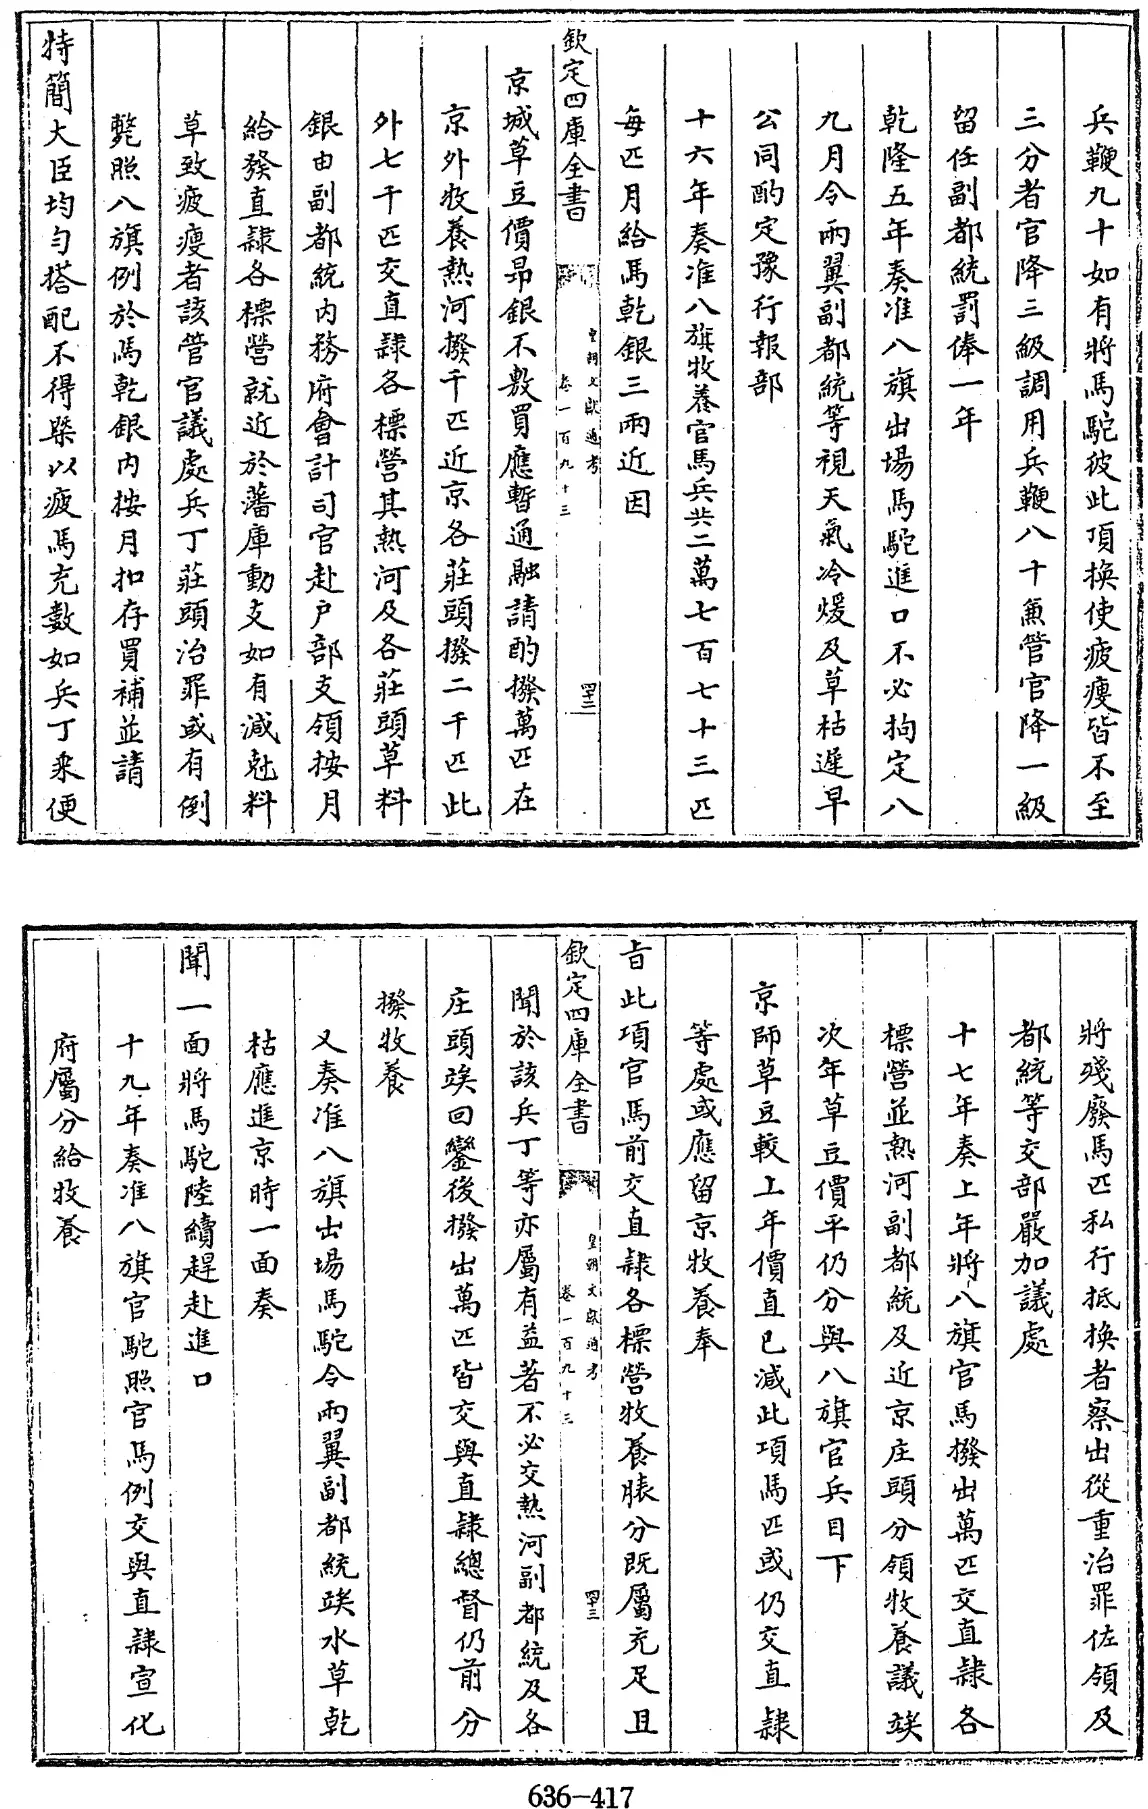 兵鞭九十如有將馬駝彼此頂換使疲瘦皆不至
三分者官降三級調用兵鞭八十兼管官降一級
留任副都統罰俸一年
乾隆五年奏准八旗出場馬駝進口不必拘定八
九月令兩翼副都統等視天氣冷煖及草枯遲早
公同酌定豫行報部
十六年奏准八旗牧養官馬兵共二萬七百七十三匹
每匹月給馬乾銀三兩近因
欽定四庫全書
皇朝文獻通考
卷一百九十三
四十二
京城草豆價昂銀不敷買應暫通融請酌撥萬匹在
京外牧養熱河撥千匹近京各莊頭撥二千匹此
外七千匹交直隸各標營其熱河及各莊頭草料
銀由副都統内務府會計司官赴户部支領按月
給發直隸各標營就近於藩庫動支如有減尅料
草致疲瘦者該管官議處兵丁莊頭治罪或有倒
斃照八旗例於馬乾銀内按月扣存買補並請
特簡大臣均勻搭配不得槩以疲馬充數如兵丁乘便
將殘廢馬匹私行抵换者察出從重治罪佐領及
都統等交部嚴加議處
十七年奏上年將八旗官馬撥出萬匹交直隸各
標營並熱河副都統及近京庄頭分領牧養議竢
次年草豆價平仍分與八旗官兵目下
京師草豆較上年價直已減此項馬匹或仍交直隸
等處或應留京牧養奉
㫖此項官馬前交直隸各標營牧養膘分既屬充足且
欽定四庫全書
皇朝文獻通考
卷一百九十三
四十三
聞於該兵丁等亦屬有益著不必交熱河副都統及各
庄頭竢回鑾後撥出萬匹皆交與直隸總督仍前分
撥牧養
又奏准八旗出場馬駝令兩翼副都統竢水草乾
枯應進京時一面奏
聞一面將馬駝陸續趕赴進口
十九年奏准八旗官駝照官馬例交與直隸宣化
府屬分給牧養
636-417